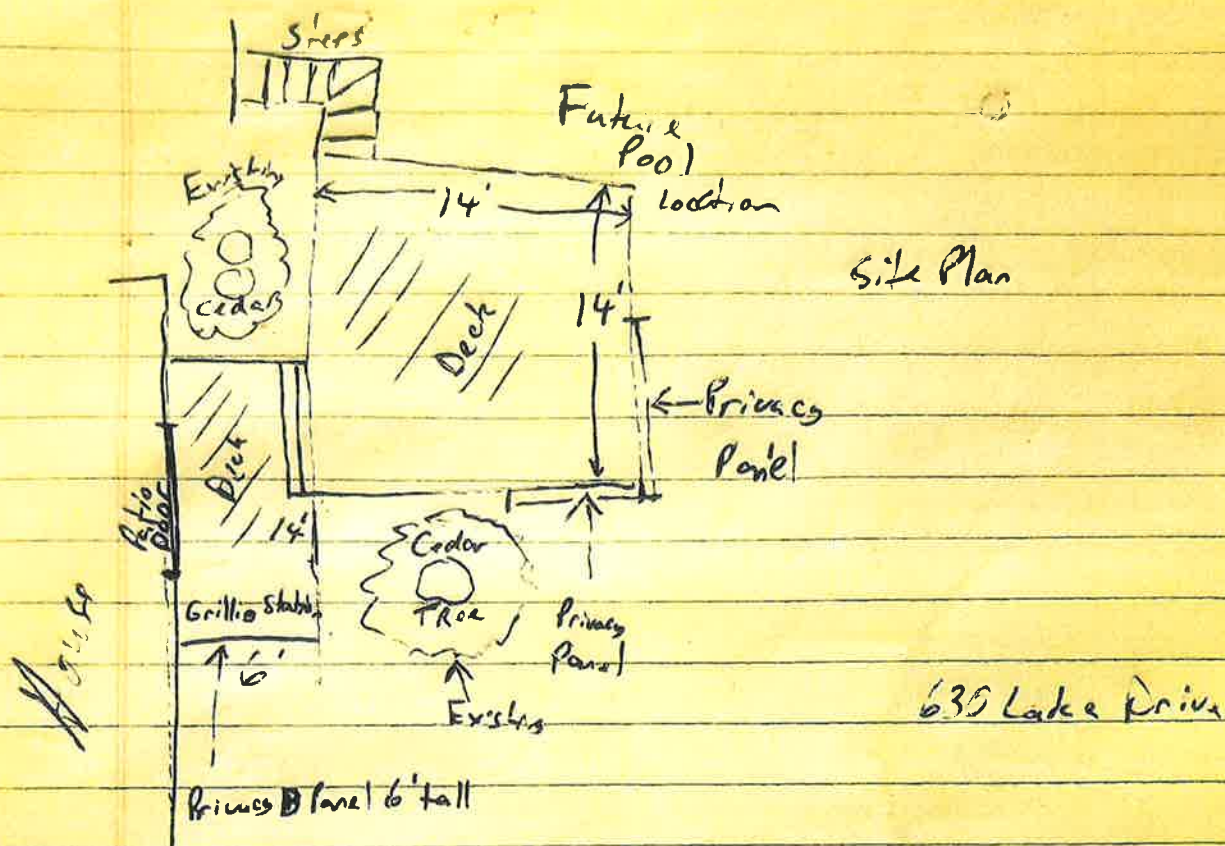 Steps
Future
Pool
Location
Existing
Cedars
14'
Site Plan
14'
Deck
Privacy
Panel
Deck
Patio
Door
14'
Cedar
TRee
Grillio
Privacy
Panel
House
6'
Existing
Lake Drive
Privacy Panel 6' tall